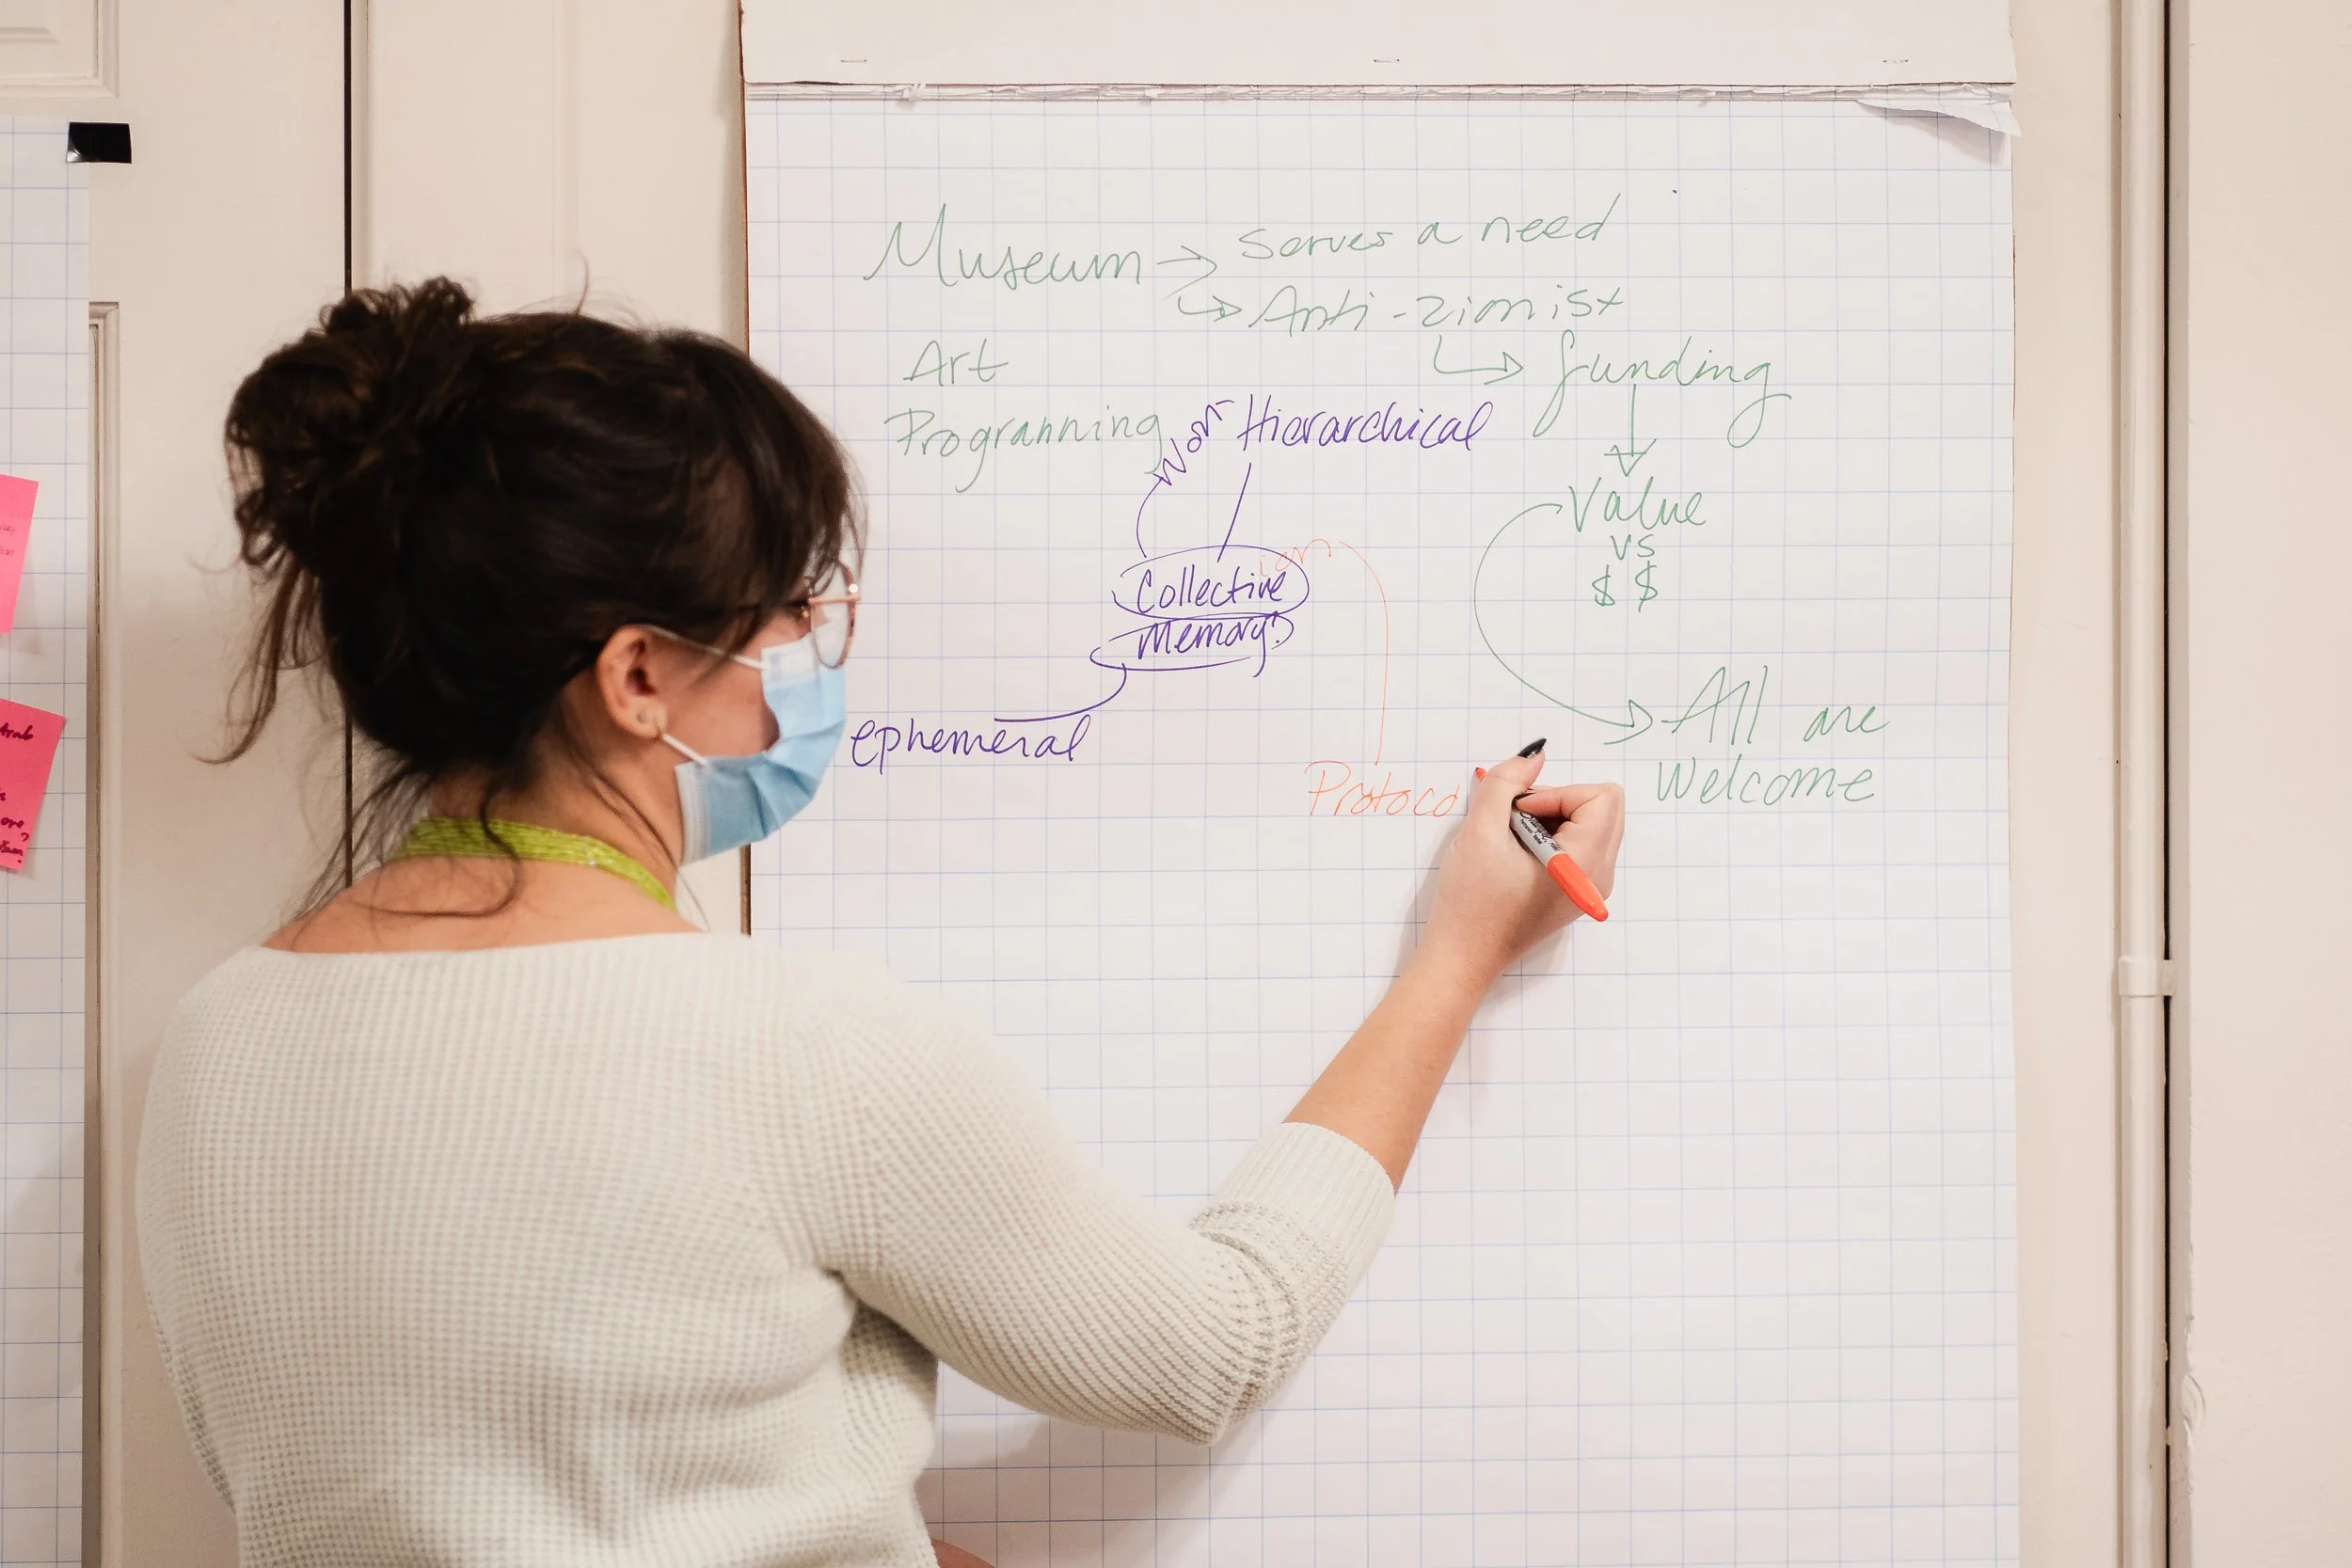 Museum → Serves a need
↳ Anti-Zionist
Art
↳ funding
Programming
Non Hierarchical
Value
vs
$ $
ion
Collective
Memory?
All are
Welcome
ephemeral
Protoco
Arab
ore?